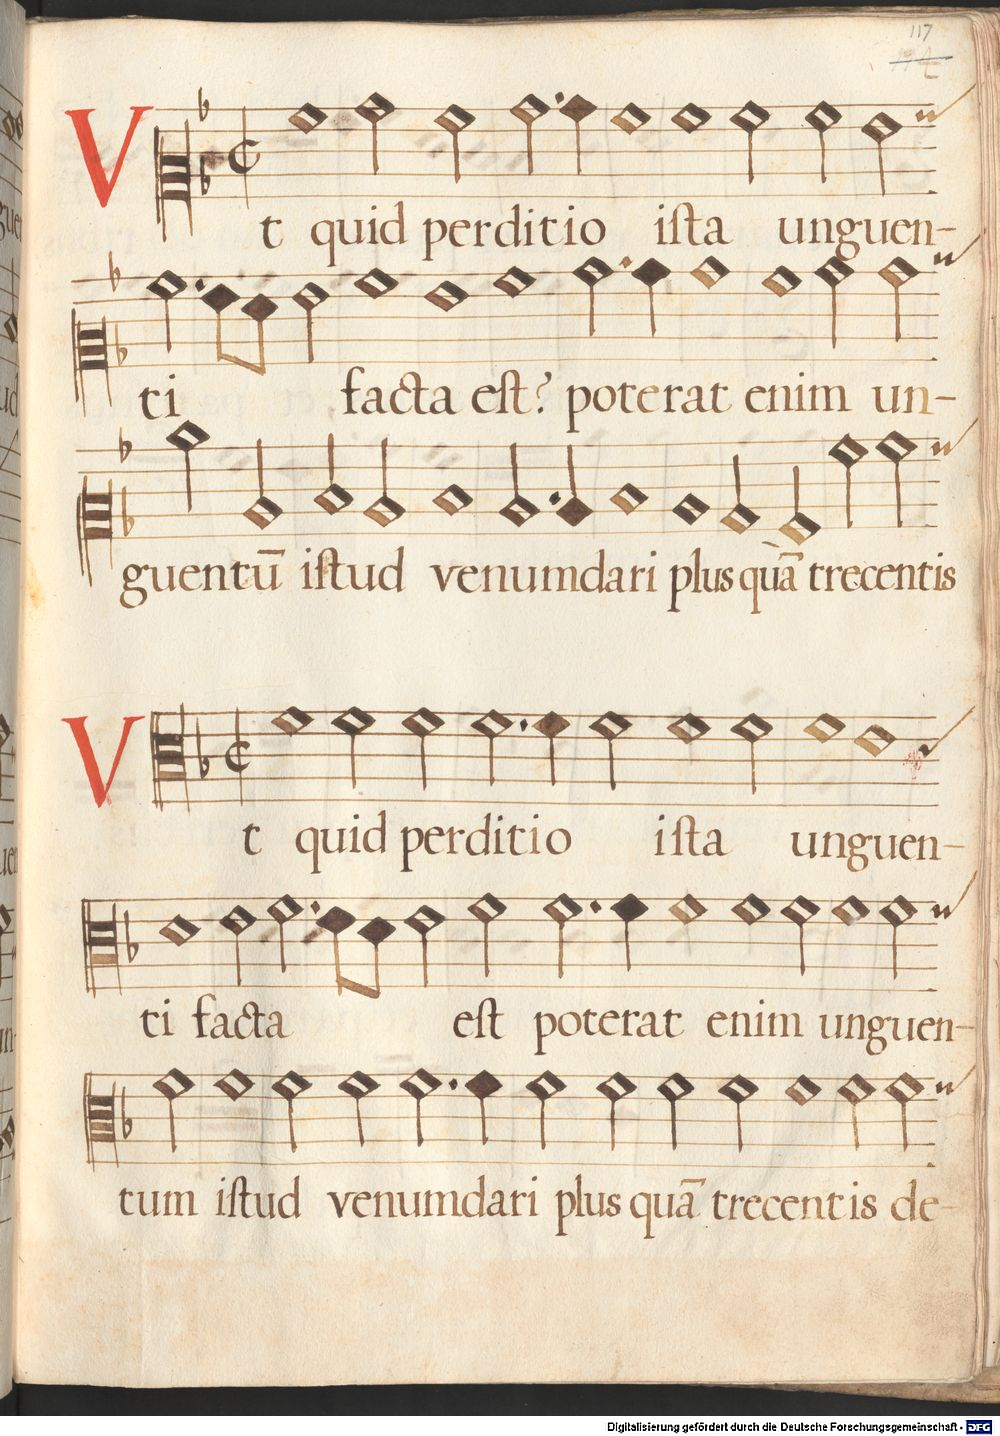 117
Vt quid perditio ista unguen-
ti facta est? poterat enim un-
guentū istud venumdari plus quā trecentis
Vt quid perditio ista unguen-
ti facta est poterat enim unguen-
tum istud venumdari plus quā trecentis de-
Digitalisierung gefördert durch die Deutsche Forschungsgemeinschaft - DFG